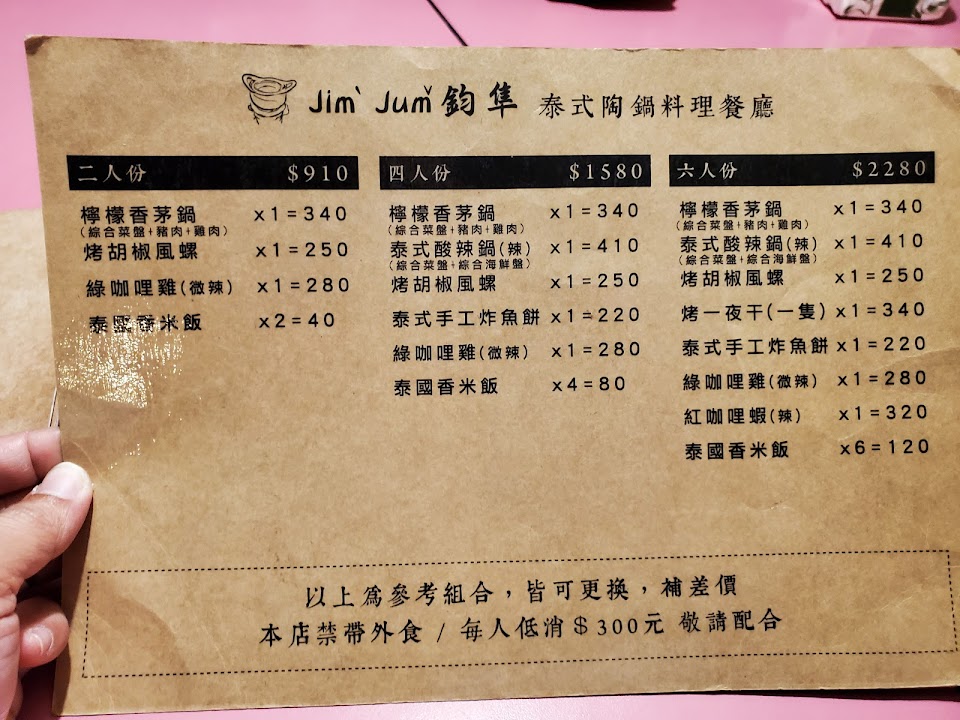 Jim Jum 鈞隼 泰式陶鍋料理餐廳
二人份 $910
檸檬香茅鍋 x1=340
(綜合菜盤+豬肉+雞肉)
烤胡椒風螺 x1=250
綠咖哩雞(微辣) x1=280
泰國香米飯 x2=40
四人份 $1580
檸檬香茅鍋 x1=340
(綜合菜盤+豬肉+雞肉)
泰式酸辣鍋(辣) x1=410
(綜合菜盤+綜合海鮮盤)
烤胡椒風螺 x1=250
泰式手工炸魚餅 x1=220
綠咖哩雞(微辣) x1=280
泰國香米飯 x4=80
六人份 $2280
檸檬香茅鍋 x1=340
(綜合菜盤+豬肉+雞肉)
泰式酸辣鍋(辣) x1=410
(綜合菜盤+綜合海鮮盤)
烤胡椒風螺 x1=250
烤一夜干(一隻) x1=340
泰式手工炸魚餅 x1=220
綠咖哩雞(微辣) x1=280
紅咖哩蝦(辣) x1=320
泰國香米飯 x6=120
以上為參考組合，皆可更換，補差價
本店禁帶外食 / 每人低消＄300元 敬請配合